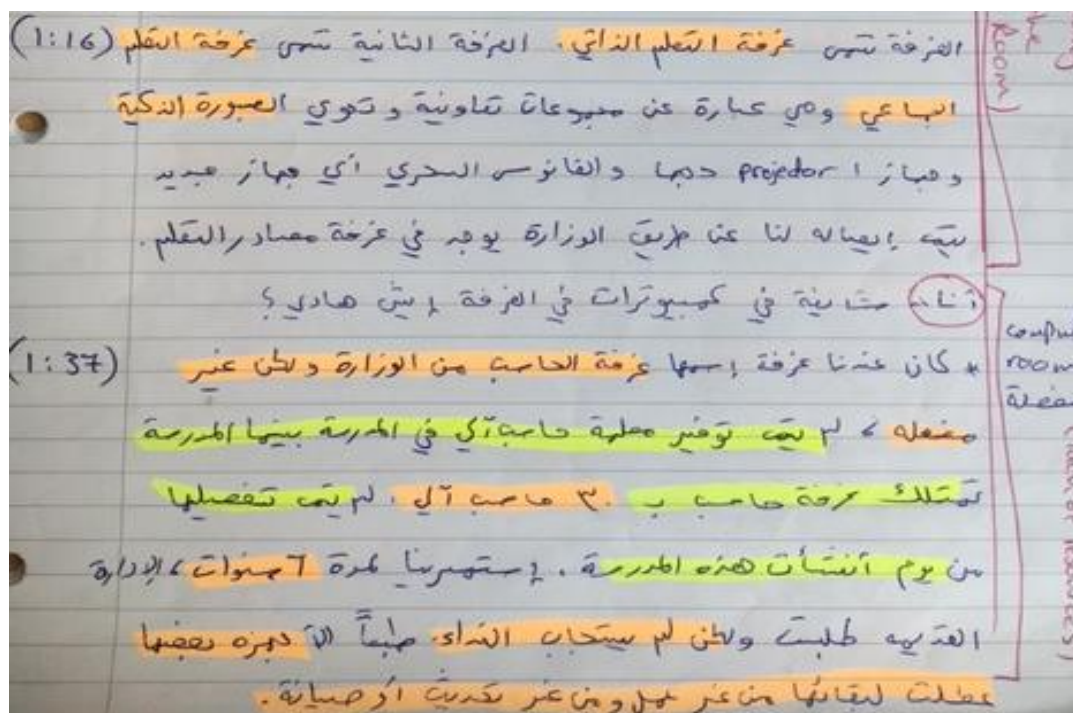 (1:16) الغرفة تسمى غرفة التعلم الذاتي. الغرفة الثانية تسمى غرفة التعلم
الجماعي وهي عبارة عن مجموعات تعاونية و تحوي الصبورة الذكية
و جهاز ا projector والفانوس السحري أي جهاز جديد
يتم إيصاله لنا عن طريق الوزارة يوجد في غرفة مصادر التعلم.
أنا: في كمبيوترات في الغرفة إيش هادي؟
(1:37) * كان عندنا غرفة إسمها غرفة الحاسب من الوزارة ولكن غير
مفعله، لم يتم توفير معلمة حاسب آلي في المدرسة بينما المدرسة
تمتلك غرفة حاسب ب ٣٠ حاسب آلي. لم يتم تفعيلها
من يوم أنشأت هذه المدرسة. إستمرينا لمدة ٦ سنوات، الإدارة
القديمه طلبت ولكن لم يستجاب النداء. طبعاً الأجهزه بعضها
عطلت لبقائها من غير عمل ومن غير تحديث أو صيانة.
Room)
room